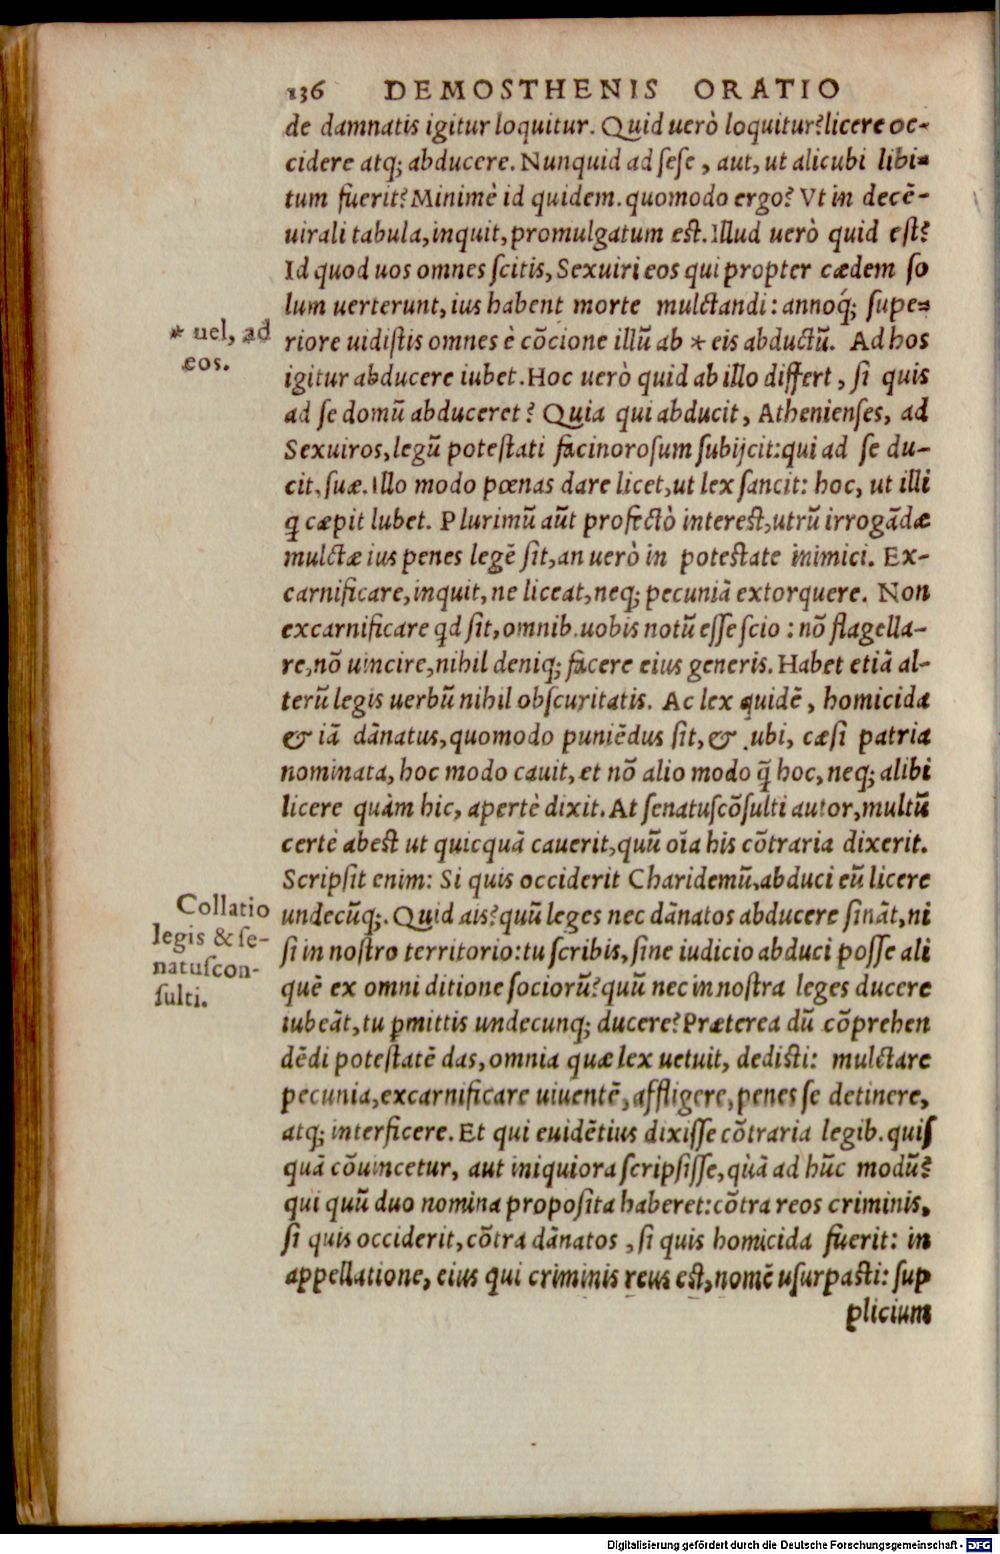 136 DEMOSTHENIS ORATIO
de damnatis igitur loquitur. Quid uerò loquitur? licere oc-
cidere atq; abducere. Nunquid ad sese, aut, ut alicubi libi-
tum fuerit? Minimè id quidem. quomodo ergo? Vt in decē-
uirali tabula, inquit, promulgatum est. Illud uerò quid est?
Id quod uos omnes scitis, Sexuiri eos qui propter cædem so
lum uerterunt, ius habent morte mulctandi: annoq́; supe-
riore uidistis omnes è cōcione illū ab * eis abductū. Ad hos
* uel, ad
eos.
igitur abducere iubet. Hoc uerò quid ab illo differt, si quis
ad se domū abduceret? Quia qui abducit, Athenienses, ad
Sexuiros, legū potestati facinorosum subijcit: qui ad se du-
cit, suæ. Illo modo pœnas dare licet, ut lex sancit: hoc, ut illi
q̃ cæpit lubet. Plurimū aūt profectò interest, utrū irrogādæ
mulctæ ius penes legē sit, an uerò in potestate inimici. Ex-
carnificare, inquit, ne liceat, neq; pecuniā extorquere. Non
excarnificare qd sit, omnib. uobis notū esse scio: nō flagella-
re, nō uincire, nihil deniq; facere eius generis. Habet etiā al-
terū legis uerbū nihil obscuritatis. Ac lex quidē, homicida
& iā dānatus, quomodo puniēdus sit, & ubi, cæsi patria
nominata, hoc modo cauit, et nō alio modo q̃ hoc, neq; alibi
licere quàm hic, apertè dixit. At senatuscōsulti autor, multū
certè abest ut quicquā cauerit, quū oīa his cōtraria dixerit.
Scripsit enim: Si quis occiderit Charidemū, abduci eū licere
Collatio
legis & se-
natuscon-
sulti.
undecūq;. Quid ais? quū leges nec dānatos abducere sināt, ni
si in nostro territorio: tu scribis, sine iudicio abduci posse ali
quē ex omni ditione sociorū? quū nec in nostra leges ducere
iubeāt, tu p̱mittis undecunq; ducere? Præterea dū cōprehen
dēdi potestatē das, omnia quæ lex uetuit, dedisti: mulctare
pecunia, excarnificare uiuentē, affligere, penes se detinere,
atq; interficere. Et qui euidētius dixisse cōtraria legib. quis
quā cōuincetur, aut iniquiora scripsisse, quā ad hūc modū?
qui quū duo nomina proposita haberet: cōtra reos criminis,
si quis occiderit, cōtra dānatos, si quis homicida fuerit: in
appellatione, eius qui criminis reus est, nomē usurpasti: sup
plicium
Digitalisierung gefördert durch die Deutsche Forschungsgemeinschaft - DFG